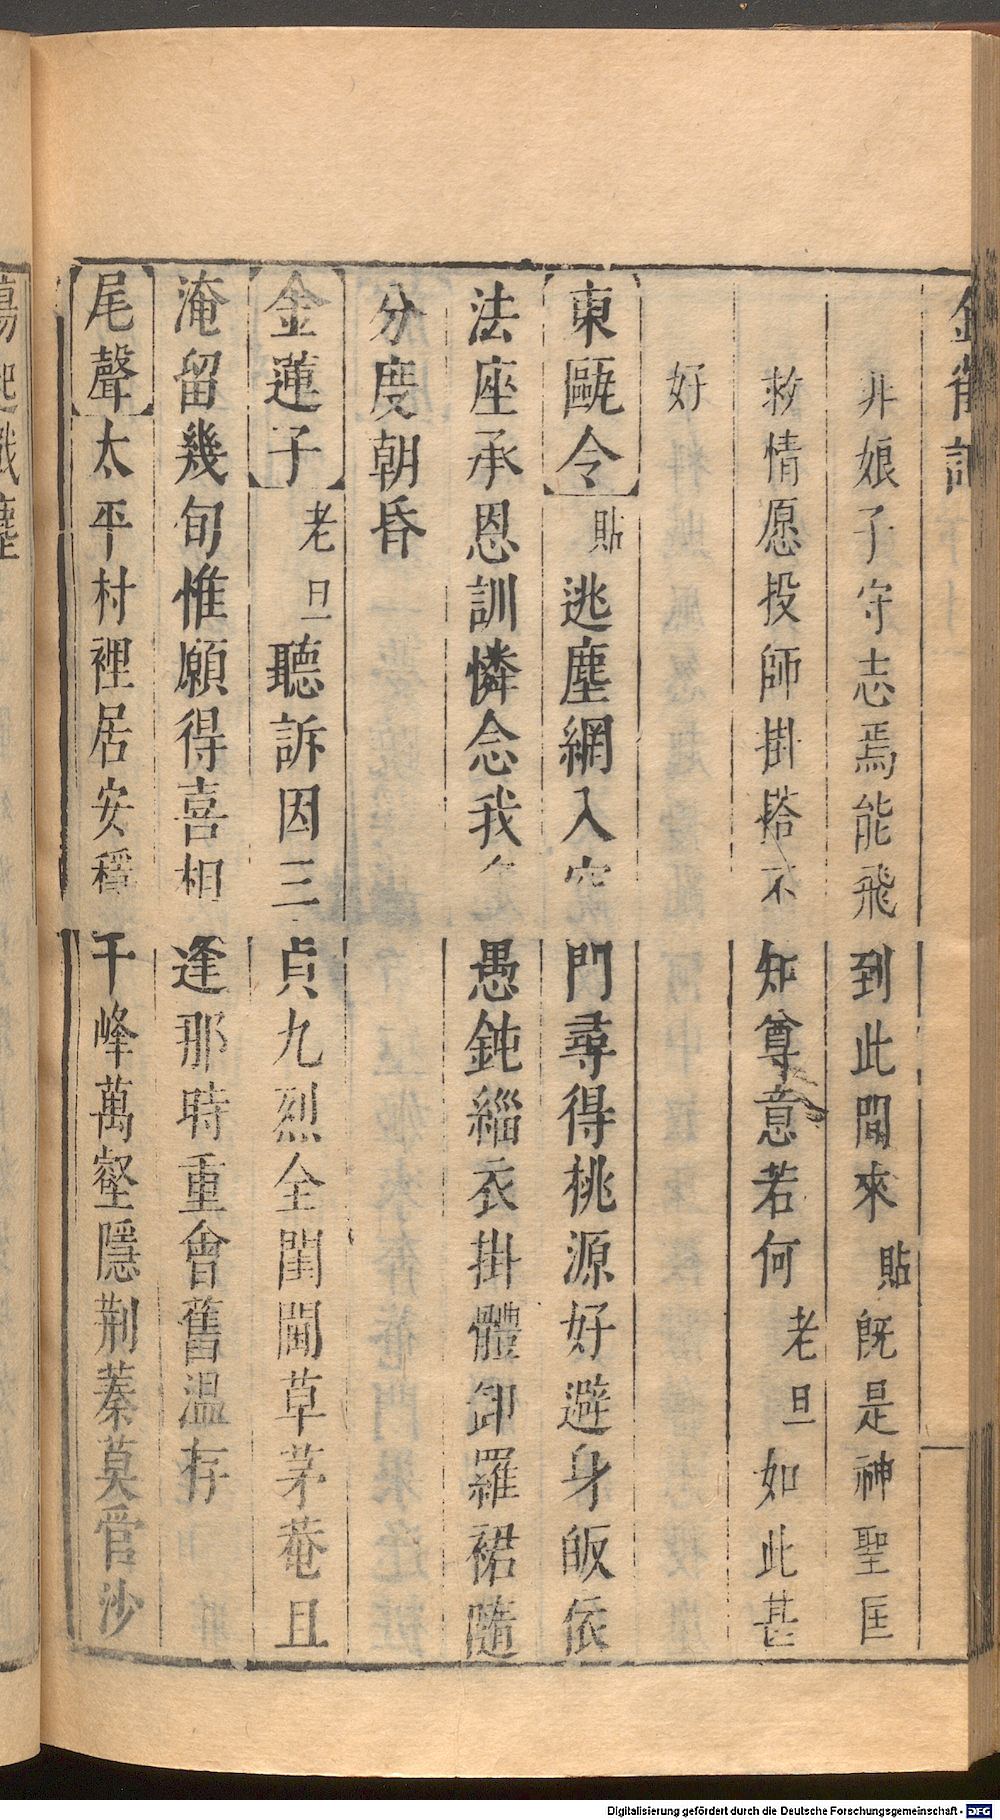 金雀記
非娘子守志焉能飛到此間來貼既是神聖匡
救情愿投師掛搭不知尊意若何老旦如此甚
好
東甌令貼逃塵網入空門尋得桃源好避身皈依
法座承恩訓憐念我愚鈍緇衣掛體卸羅裙隨
分度朝昏
金蓮子老旦聽訴因三貞九烈全閨閫草茅菴且
淹留幾旬惟願得喜相逢那時重會舊溫存
尾聲太平村裡居安穩千峰萬壑隱荆蓁莫管沙
Digitalisierung gefördert durch die Deutsche Forschungsgemeinschaft - DFG